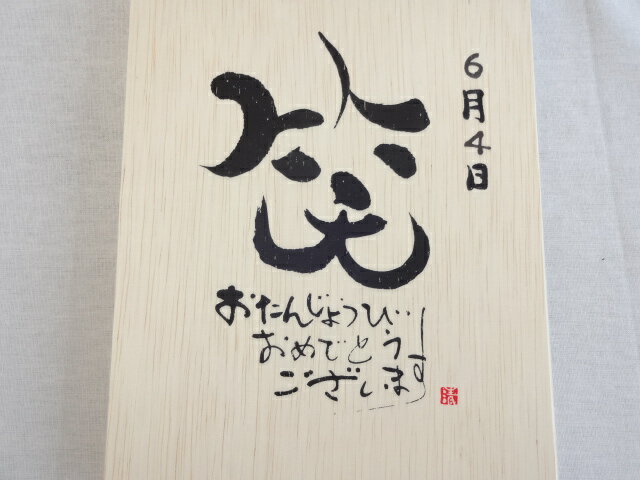 笑
6月4日
おたんじょうび
おめでとう
ございます